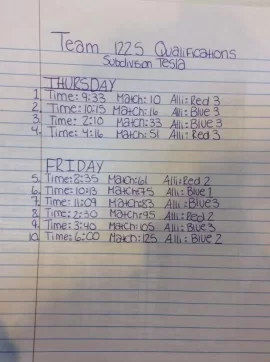 Team 1225 Qualifications
Subdivision Tesla
THURSDAY
1. Time: 9:33 Match: 10 Alli: Red 3
2. Time: 10:15 Match: 16 Alli: Blue 3
3. Time: 2:10 Match: 33 Alli: Blue 3
4. Time: 4:16 Match: 51 Alli: Red 3
FRIDAY
5. Time: 8:35 Match: 61 Alli: Red 2
6. Time: 10:13 Match: 75 Alli: Blue 1
7. Time: 11:09 Match: 83 Alli: Blue 3
8. Time: 2:30 Match: 95 Alli: Red 2
9. Time: 3:40 Match: 105 Alli: Blue 3
10. Time: 6:00 Match: 125 Alli: Blue 2